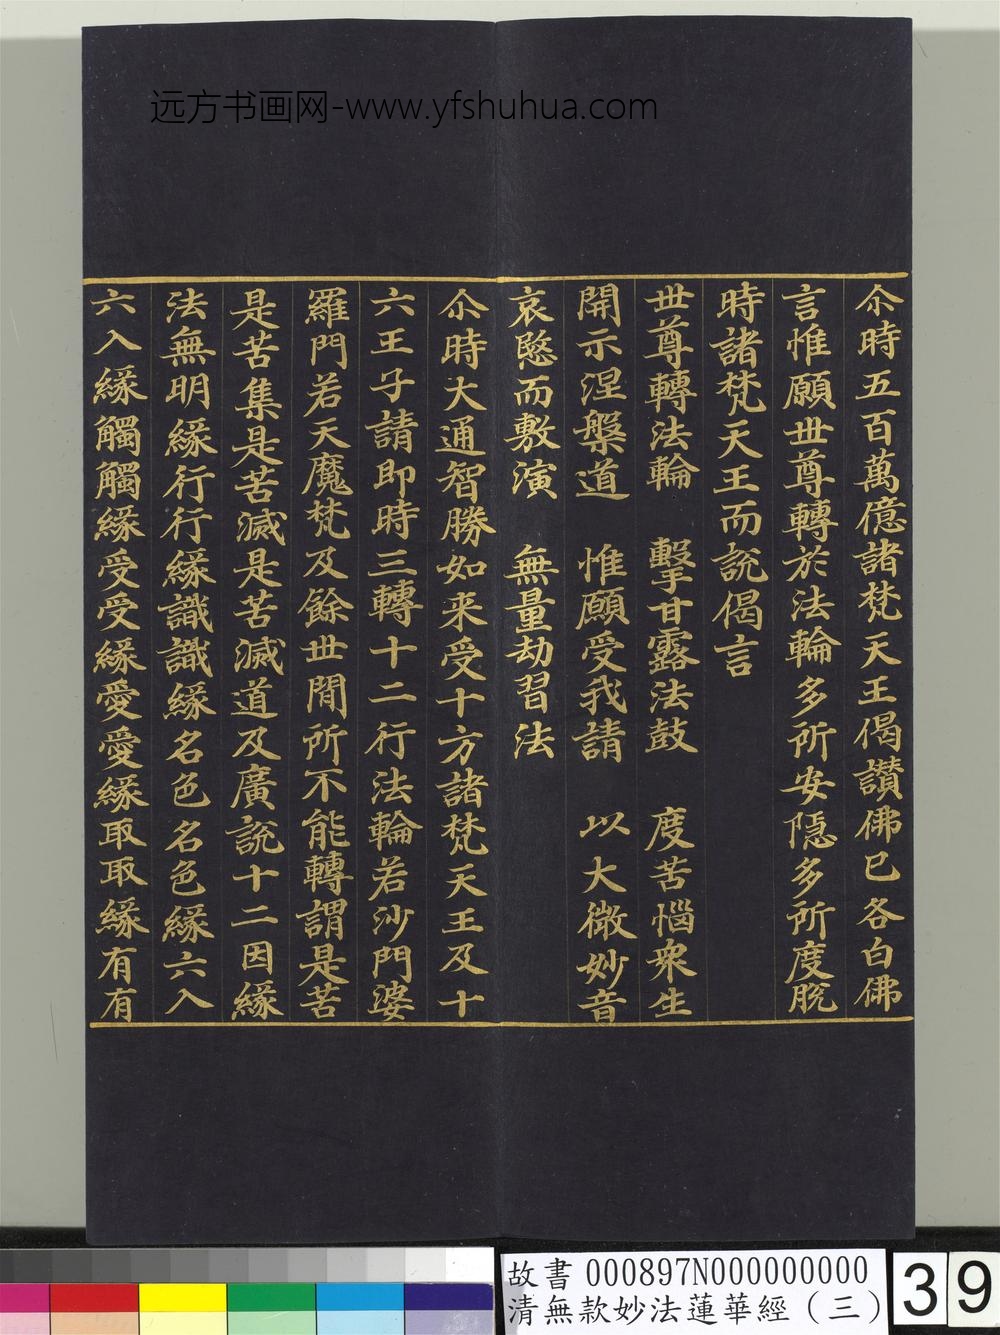 远方书画网-www.yfshuhua.com
尒時五百萬億諸梵天王偈讃佛已各白佛
言惟願世尊轉於法輪多所安隱多所度脫
時諸梵天王而說偈言
世尊轉法輪　擊甘露法鼓　度苦惱衆生
開示涅槃道　惟願受我請　以大微妙音
哀愍而敷演　無量劫習法
尒時大通智勝如來受十方諸梵天王及十
六王子請即時三轉十二行法輪若沙門婆
羅門若天魔梵及餘世間所不能轉謂是苦
是苦集是苦滅是苦滅道及廣說十二因緣
法無明緣行行緣識識緣名色名色緣六入
六入緣觸觸緣受受緣愛愛緣取取緣有有
故書 000897N000000000
清無款妙法蓮華經（三）
39